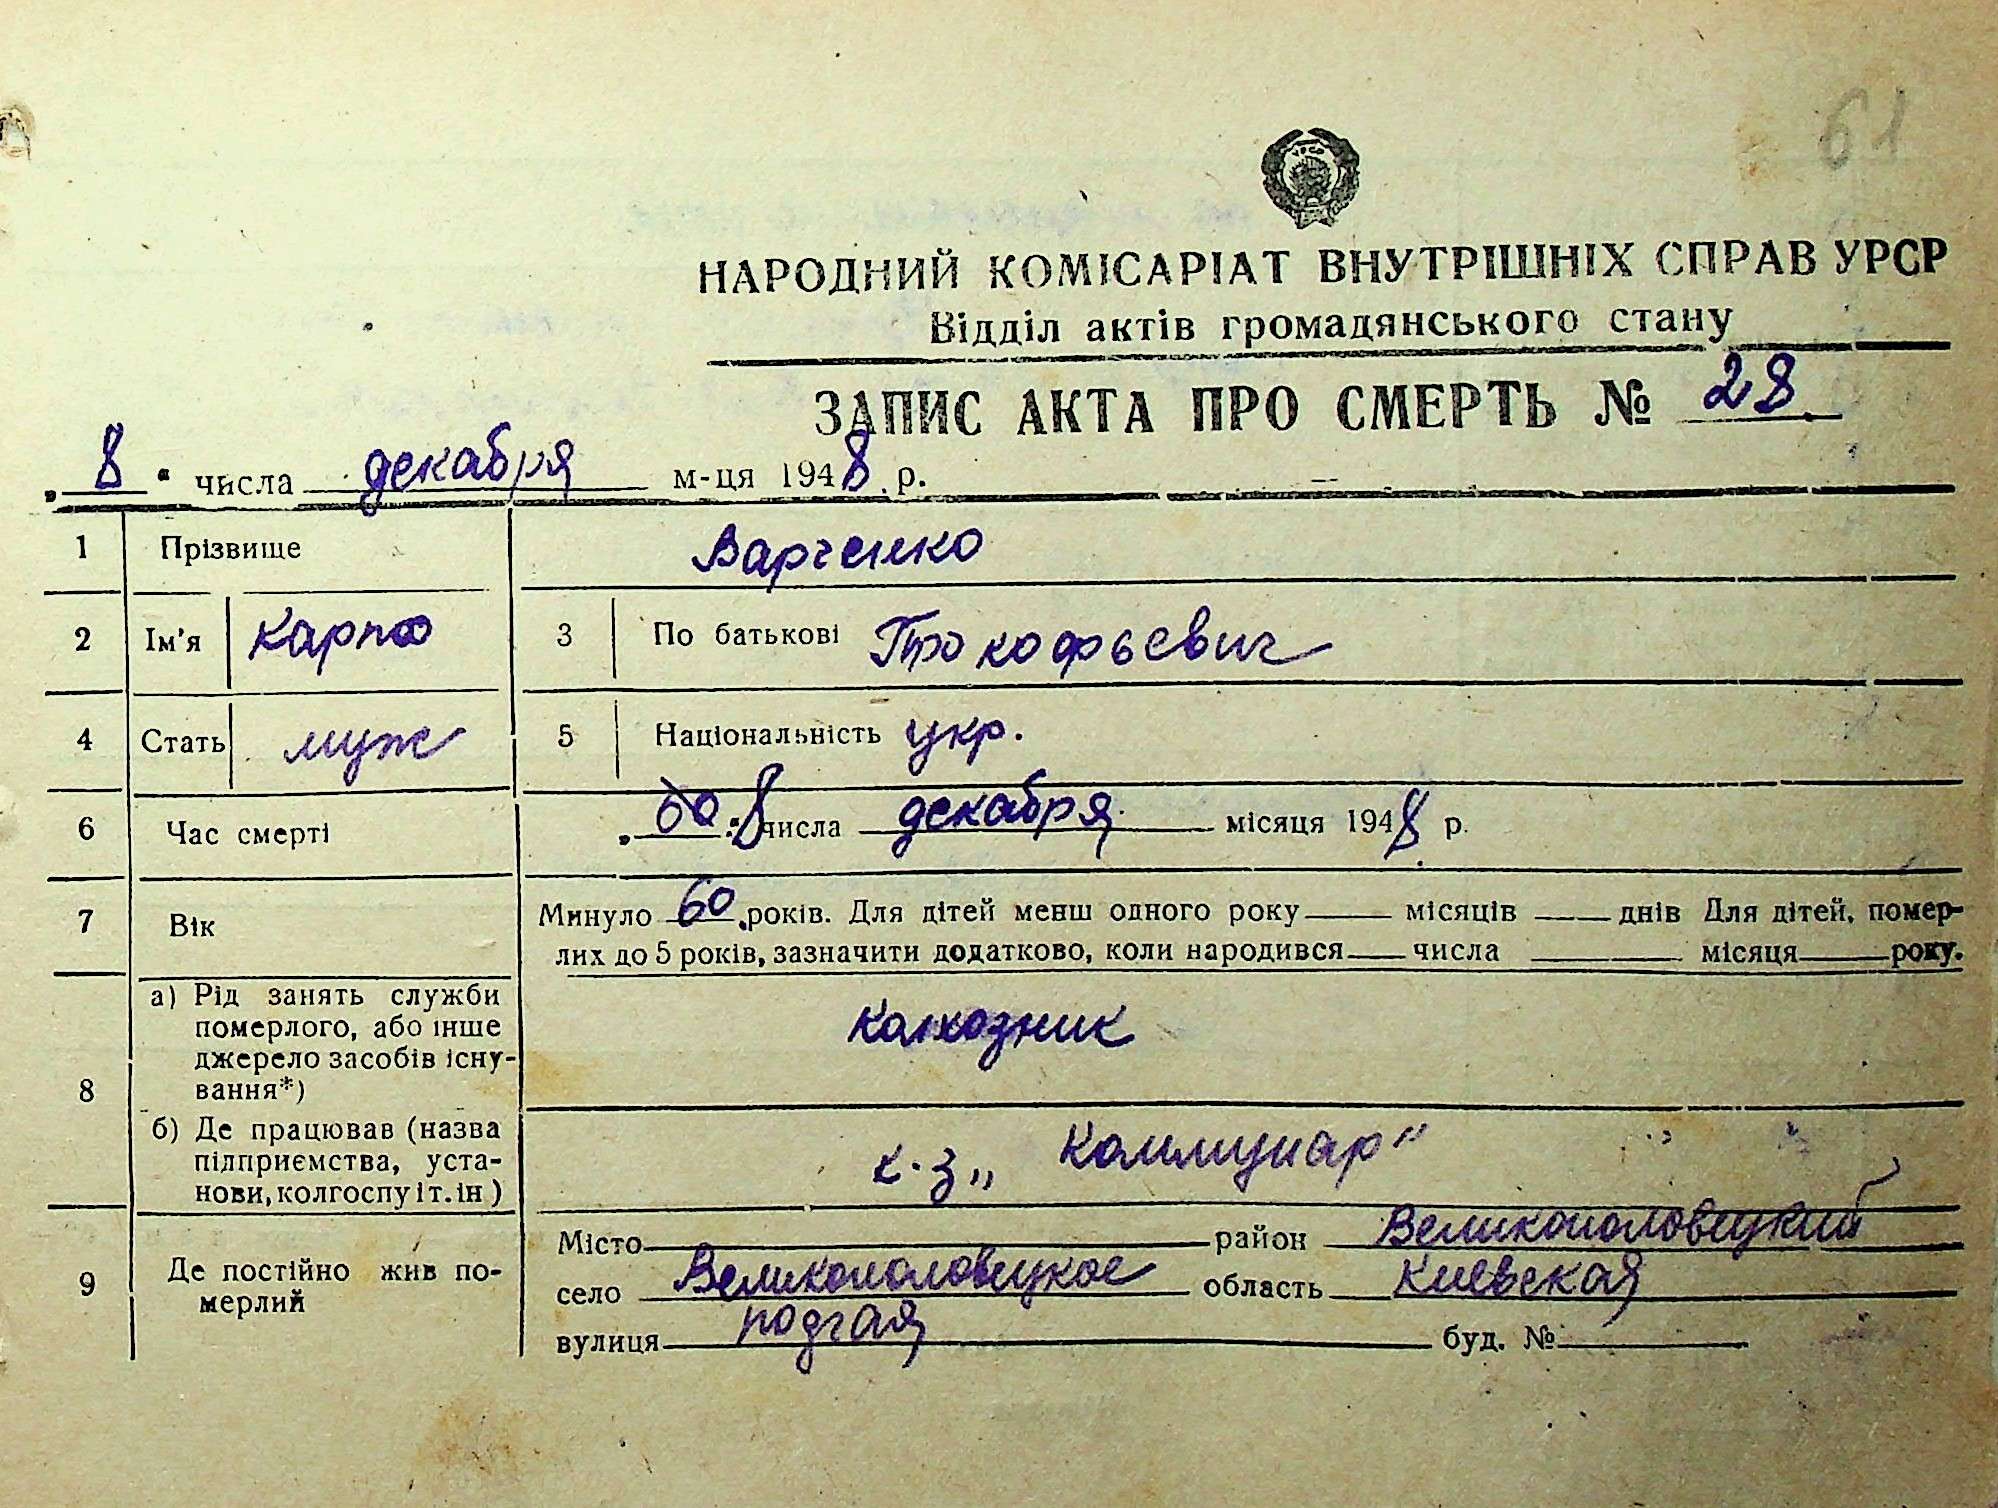 61
НАРОДНИЙ КОМІСАРІАТ ВНУТРІШНІХ СПРАВ УРСР
Відділ актів громадянського стану
ЗАПИС АКТА ПРО СМЕРТЬ № 28.
„ 8 “ числа декабря м-ця 1948 р.
1 Прізвище Варченко
2 Ім'я Карпо 3 По батькові Прокофьевич
4 Стать муж 5 Національність укр.
6 Час смерті „ 60 “ 8 числа декабря місяця 1948 р.
7 Вік Минуло 60 років. Для дітей менш одного року місяців днів Для дітей, помер-
лих до 5 років, зазначити додатково, коли народився числа місяця року.
8 а) Рід занять служби померлого, або інше джерело засобів існу-
вання*) колхозник
б) Де працював (назва підприємства, уста-
нови, колгоспу і т. ін) к-з „Коммунар"
9 Де постійно жив по-
мерлий
Місто район Великополовецкий
село Великополовецкое область Киевская
вулиця буд. №